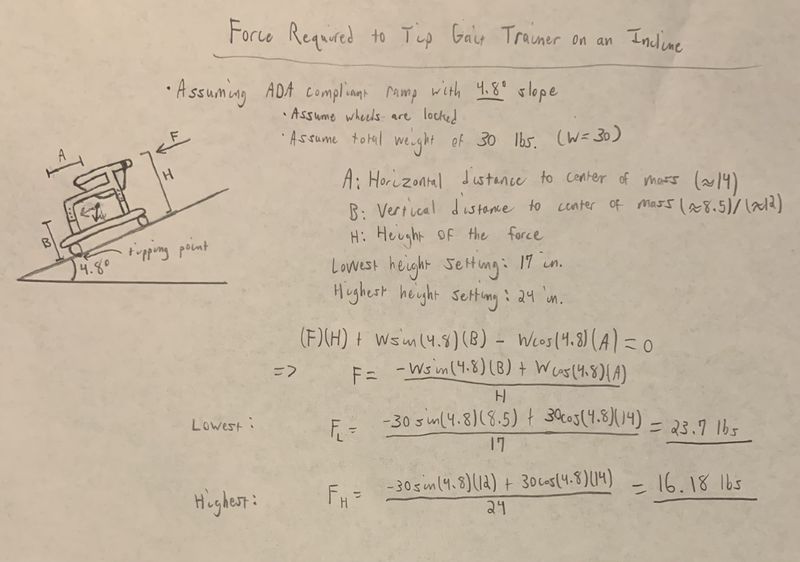 Force Required to Tip Gait Trainer on an Incline
• Assuming ADA compliant ramp with 4.8° slope
• Assume wheels are locked
• Assume total weight of 30 lbs. (W=30)
A F H B W
tipping point
4.8°
A: Horizontal distance to center of mass (≈14)
B: Vertical distance to center of mass (≈8.5)/(≈12)
H: Height of the force
Lowest height setting: 17 in.
Highest height setting: 24 in.
(F)(H) + Wsin(4.8)(B) - Wcos(4.8)(A) = 0
=> F = -Wsin(4.8)(B) + Wcos(4.8)(A) / H
Lowest: F_L = -30 sin(4.8)(8.5) + 30cos(4.8)(14) / 17 = 23.7 lbs
Highest: F_H = -30sin(4.8)(12) + 30cos(4.8)(14) / 24 = 16.18 lbs